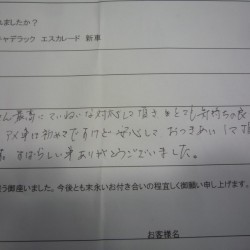 れましたか？
ャデラック エスカレード 新車
さん最高にていねいな対応して頂き とても気持ちの良
アメ車は初めてですけど安心して おつきあい して頂
すばらしい車ありがとうございました。
う御座いました。今後とも末永いお付き合いの程宜しく御願い申し上げます。
お客様名